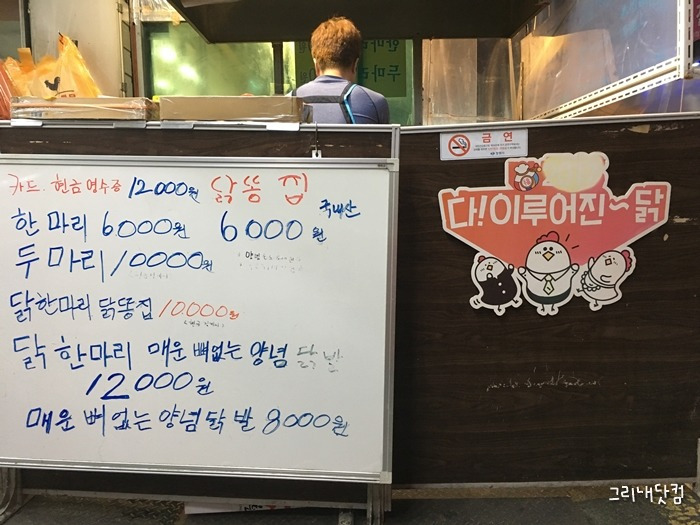 한마리
두마리
금연
카드. 현금영수증 12000원 닭똥집
국내산
한마리 6000원 6000원
두마리 10000원
닭한마리 닭똥집 10.000원
닭한마리 매운 뼈없는 양념 닭발
12000원
매운 뼈없는 양념 닭발 8000원
다!이루어진~닭
그리내닷컴